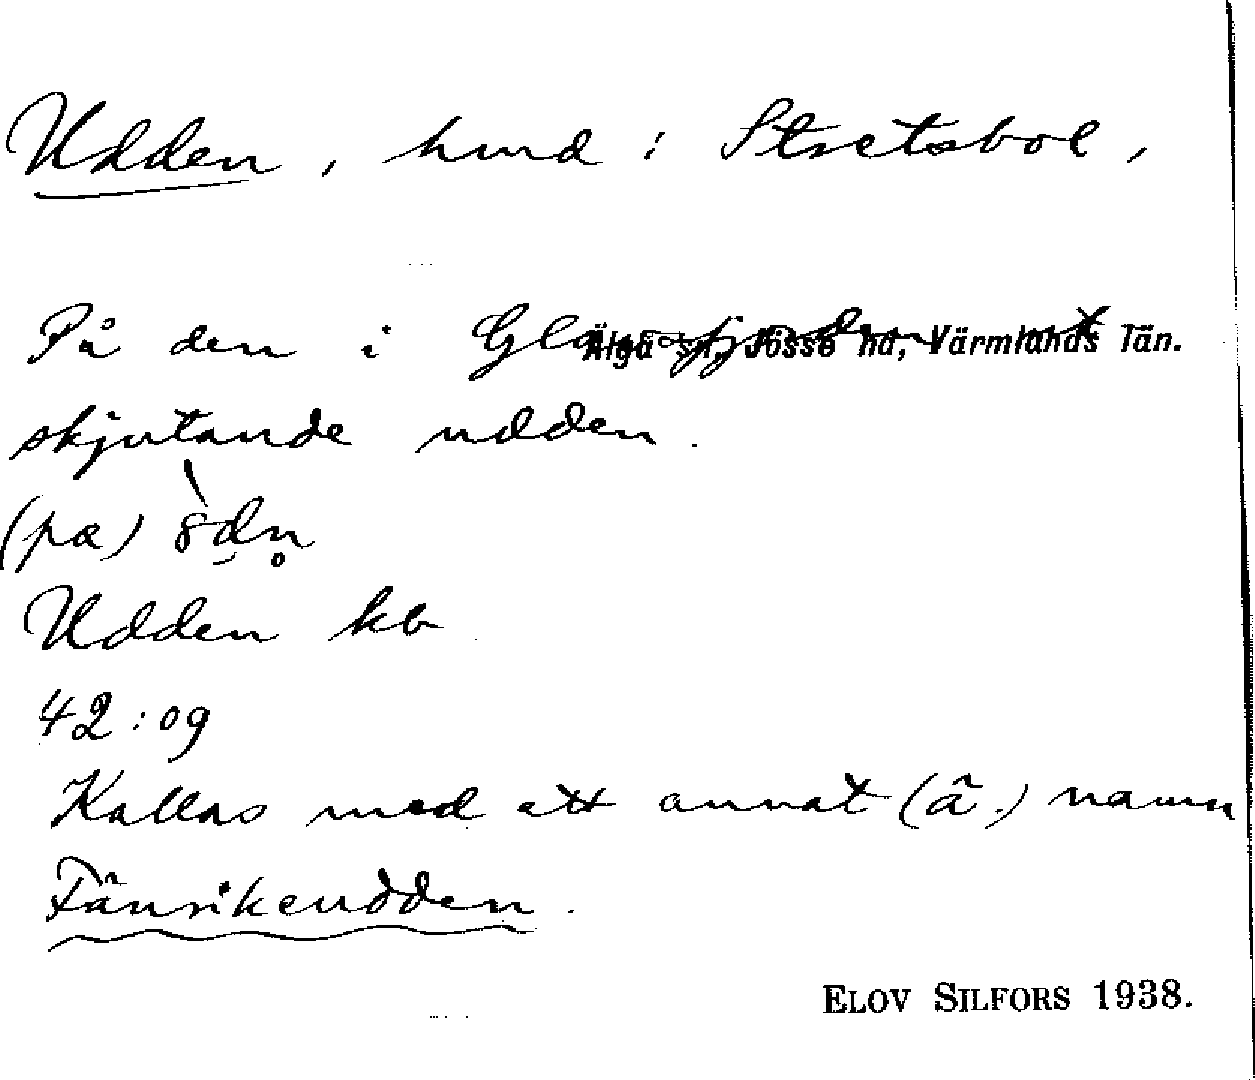 Udden, hmd i Stretsbol,
På den i Glasfjorden ut
Älgå sn, Jösse hd, Värmlands län.
skjutande udden.
(pa)
Udden kb
42:09
Kallas med ett annat (ä.) namn
Fänrikeudden.
ELOV SILFORS 1938.